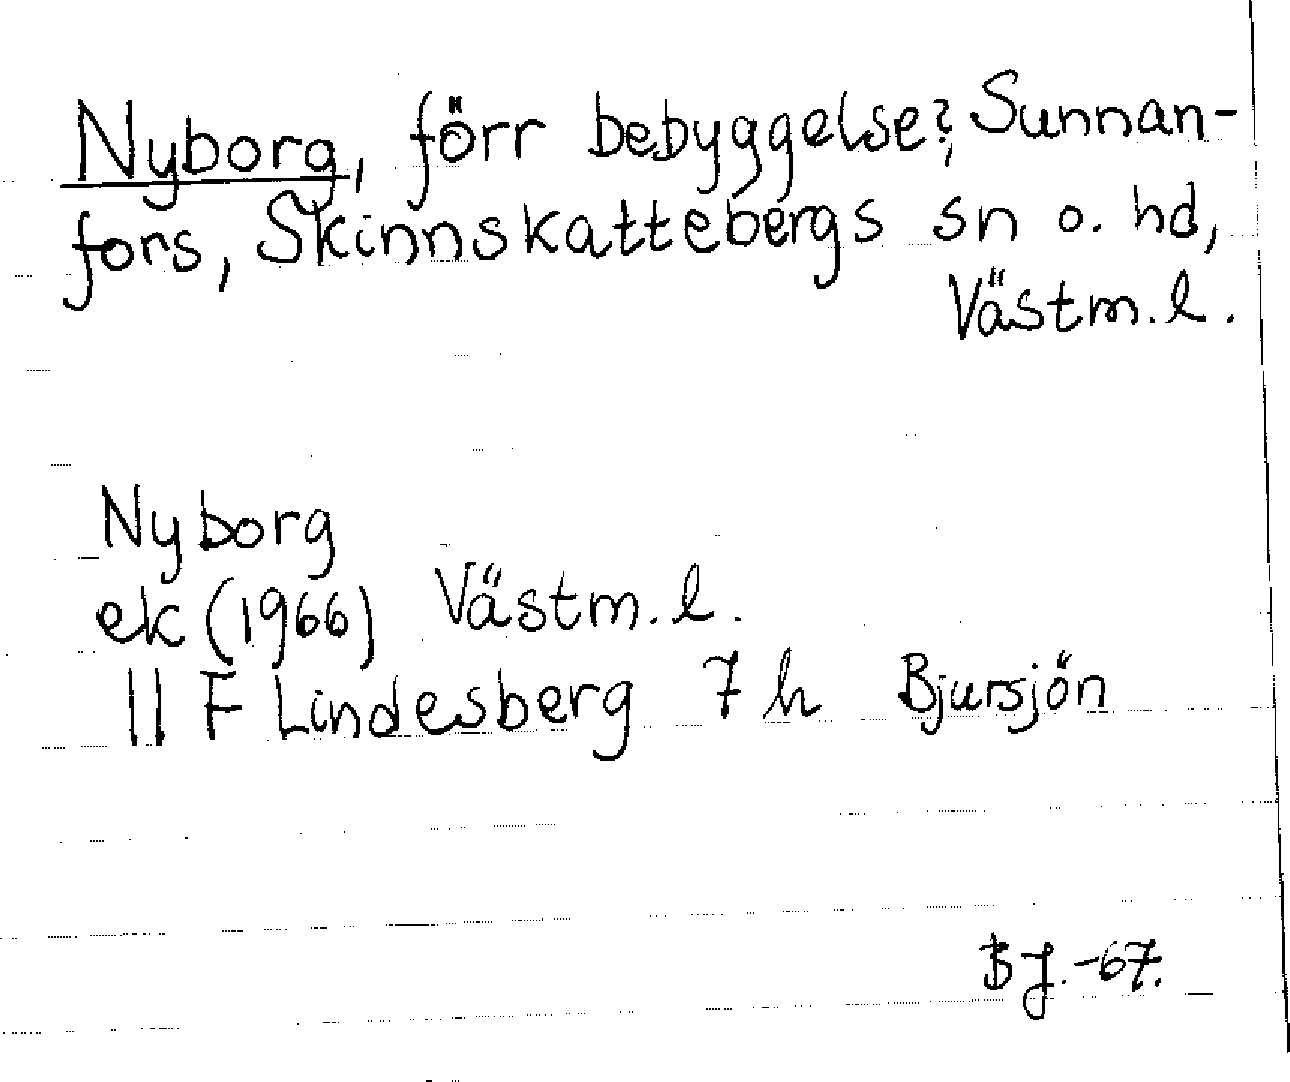 Nyborg, förr bebyggelse?, Sunnan-
fors, Skinnskattebergs sn o. hd,
Västm.l.
Nyborg
ek (1966) Västm.l.
11 F Lindesberg 7 h Bjursjön
BJ.-67.